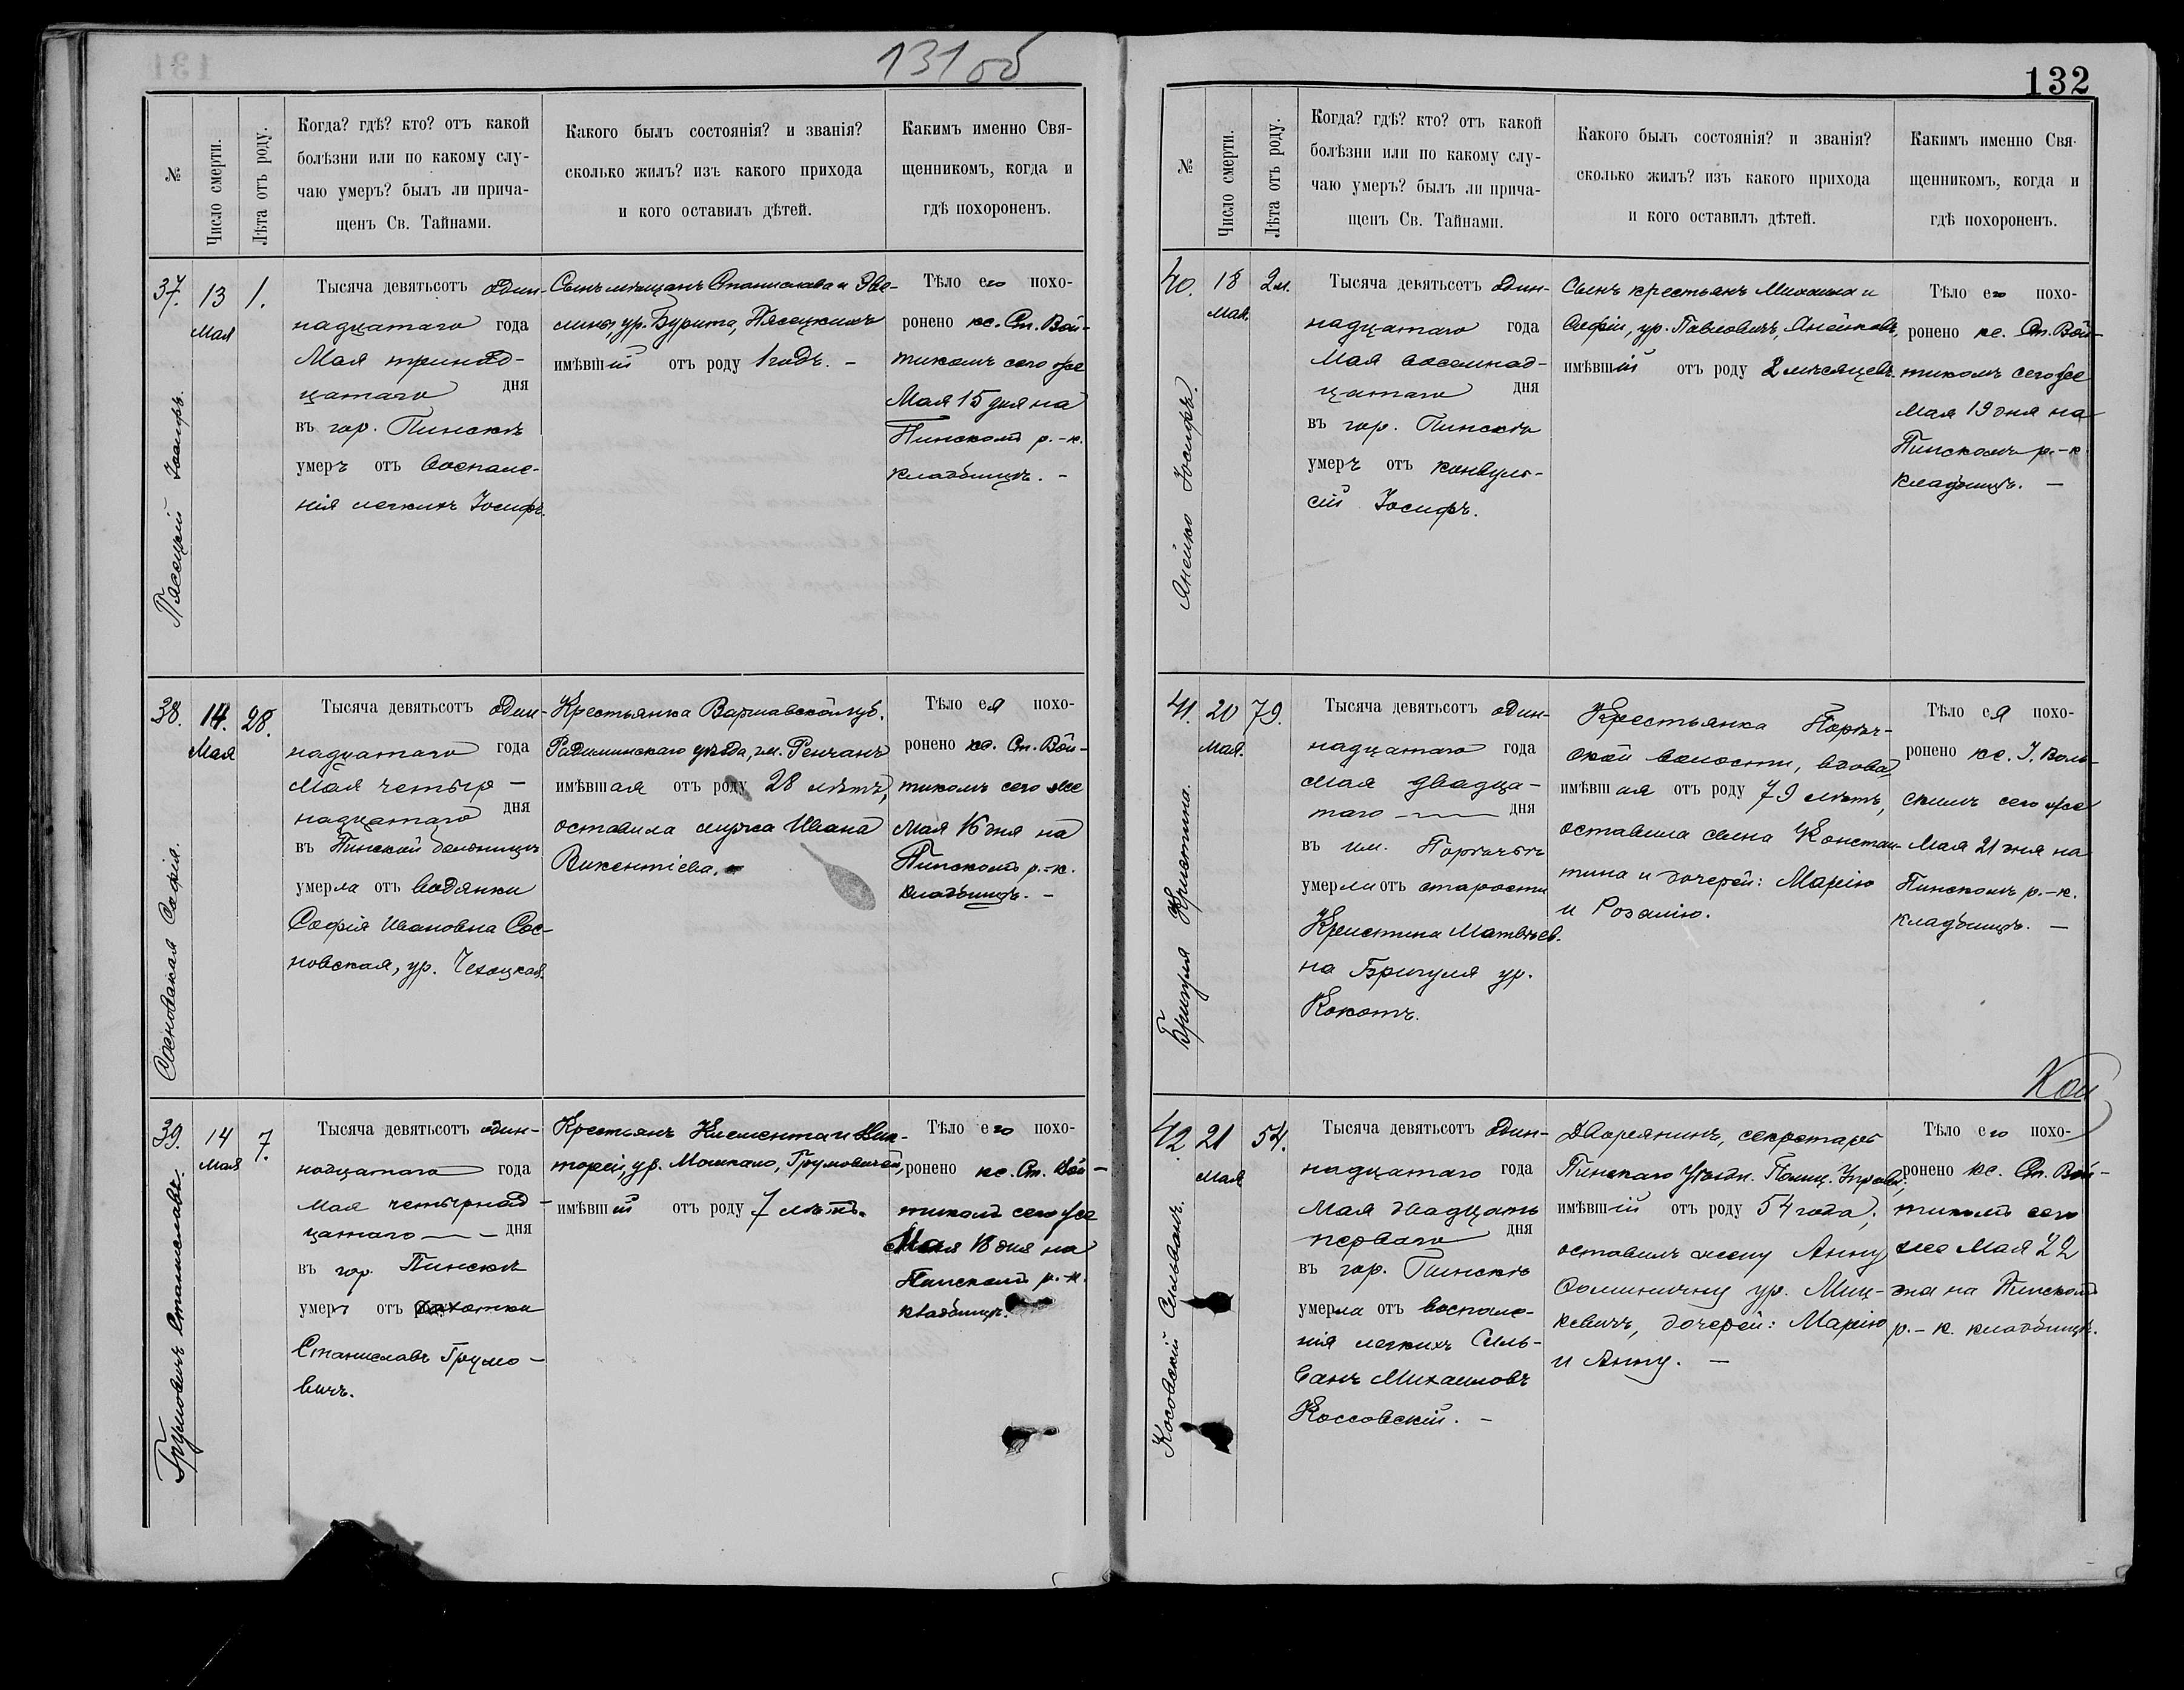 131об
№
Число смерти.
Лѣта отъ роду.
Когда? гдѣ? кто? отъ какой
болѣзни или по какому слу-
чаю умеръ? былъ ли прича-
щенъ Св. Тайнами.
Какого былъ состоянія? и званія?
сколько жилъ? изъ какого прихода
и кого оставилъ дѣтей.
Какимъ именно Свя-
щенникомъ, когда и
гдѣ похороненъ.
37.
Пясецкій Іосифъ.
13
Мая
1.
Тысяча девятьсотъ один-
надцатаго года
Мая тринад-
цатаго дня
въ гор. Пинскѣ
умеръ отъ воспале-
нія легкихъ Іосифъ.
Сынъ мѣщанъ Станислава и Эве-
лины, ур. Бурита, Пясецкихъ
имѣвшій отъ роду 1 годъ. -
Тѣло его похо-
ронено кс. Ст. Вой-
тикомъ сего же
Мая 15 дня на
Пинскомъ р.-к.
кладбищѣ. -
38.
Сосновская Софія.
14.
Мая
28.
Тысяча девятьсотъ один-
надцатаго года
Мая четыр-
надцатаго дня
въ Пинской больницѣ
умерла отъ водянки
Софія Ивановна Сос-
новская, ур.
Крестьянка Варшавской губ.
Радиминскаго уѣзда, гм. Ренчанъ
имѣвшая отъ роду 28 лѣтъ,
оставила мужа Ивана
Викентіева. -
Тѣло ея похо-
ронено кс. Ст. Вой-
тикомъ сего же
Мая 16 дня на
Пинскомъ р.-к.
кладбищѣ. -
39.
Грумовичъ Станиславъ.
14
Мая
7.
Тысяча девятьсотъ один-
надцатаго года
Мая четырнад-
цатаго - дня
въ гор. Пинскѣ
умеръ отъ чахотки
Станиславъ Грумо-
вичъ.
Крестьянъ Климента и Вик-
торіи, ур. Мошкало, Грумовичей,
имѣвшій отъ роду 7 лѣтъ.
Тѣло его похо-
ронено кс. Ст. Вой-
тикомъ сего же
Мая 18 дня на
Пинскомъ р.-к.
кладбищѣ.
132
№
Число смерти.
Лѣта отъ роду.
Когда? гдѣ? кто? отъ какой
болѣзни или по какому слу-
чаю умеръ? былъ ли прича-
щенъ Св. Тайнами.
Какого былъ состоянія? и званія?
сколько жилъ? изъ какого прихода
и кого оставилъ дѣтей.
Какимъ именно Свя-
щенникомъ, когда и
гдѣ похороненъ.
40.
Янейко Іосифъ.
18
Мая.
2 м.
Тысяча девятьсотъ один-
надцатаго года
Мая восемнад-
цатаго дня
въ гор. Пинскѣ
умеръ отъ конвуль-
сій Іосифъ.
Сынъ крестьянъ Михаила и
Софіи, ур. Павловичъ, Янейковъ,
имѣвшій отъ роду 2 мѣсяцевъ.
Тѣло его похо-
ронено кс. Ст. Вой-
тикомъ сего же
Мая 19 дня на
Пинскомъ р.-к.
кладбищѣ. -
41.
Бригуля Кристина.
20
Мая.
79.
Тысяча девятьсотъ один-
надцатаго года
Мая двадца-
таго - дня
въ им. Порѣчьѣ
умерли отъ старости
Кристина Матвѣев.
на Бригуля ур.
Кокотъ.
Крестьянка Порѣч-
ской волости, вдова,
имѣвшая отъ роду 79 лѣтъ,
оставила сына Констан-
тина и дочерей: Марію
и Розалію.
Тѣло ея похо-
ронено кс. І. Воль-
скимъ сего же
Мая 21 дня на
Пинскомъ р.-к.
кладбищѣ. -
42.
Косовскій Сильванъ.
21
Мая
54.
Тысяча девятьсотъ один-
надцатаго года
Мая двадцать
перваго дня
въ гор. Пинскѣ
умерла отъ воспале-
нія легкихъ Силь-
ванъ Михаиловъ
Коссовскій. -
Дворянинъ, секретарь
Пинскаго Уѣздн. Полиц. Управ.,
имѣвшій отъ роду 54 года,
оставилъ жену Анну
Осиповну ур. Миц-
кевичъ, дочерей: Марію
и Анну. -
Тѣло его похо-
ронено кс. Ст. Вой-
тикомъ сего
же Мая 22
дня на Пинскомъ
р.-к. кладбищѣ.